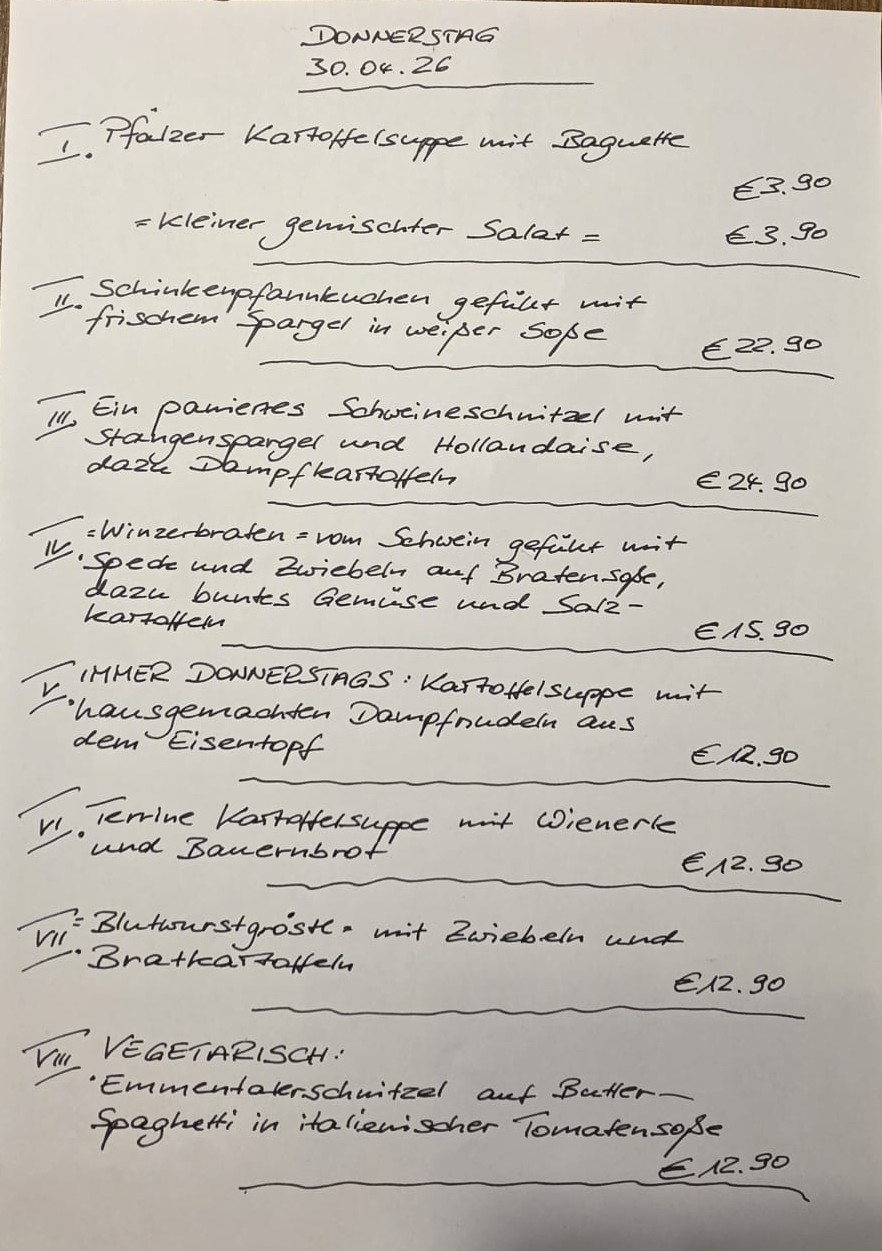 DONNERSTAG
30.04.26
I. Pfälzer Kartoffelsuppe mit Baguette
€3.90
=Kleiner gemischter Salat= €3.90
II. Schinkenpfannkuchen gefüllt mit
frischem Spargel in weißer Soße
€22.90
III. Ein paniertes Schweineschnitzel mit
Stangenspargel und Hollandaise,
dazu Dampfkartoffeln
€24.90
IV. =Winzerbraten= vom Schwein gefüllt mit
Speck und Zwiebeln auf Bratensoße,
dazu buntes Gemüse und Salz-
kartoffeln
€15.90
V. IMMER DONNERSTAGS: Kartoffelsuppe mit
hausgemachten Dampfnudeln aus
dem Eisentopf
€12.90
VI. Terrine Kartoffelsuppe mit Wienerle
und Bauernbrot
€12.90
VII. =Blutwurstgröstl= mit Zwiebeln und
Bratkartoffeln
€12.90
VIII. VEGETARISCH:
Emmentalerschnitzel auf Butter-
Spaghetti in italienischer Tomatensoße
€12.90